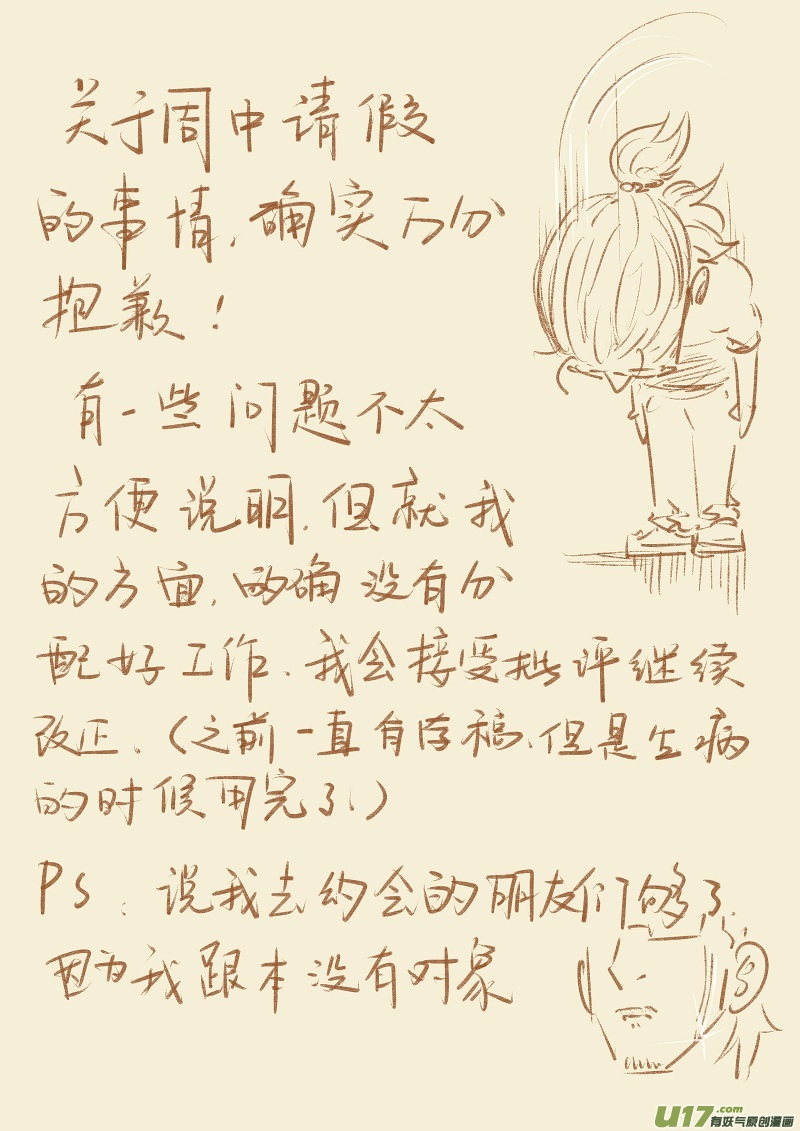 关于周中请假
的事情,确实万分
抱歉!
有一些问题不太
方便说明,但就我
的方面,的确没有分
配好工作、我会接受批评继续
改正。(之前一直有存稿、但是生病
的时候用完了、)
PS:说我去约会的朋友们够了、
因为我跟本没有对象
U17.com
有妖气原创漫画